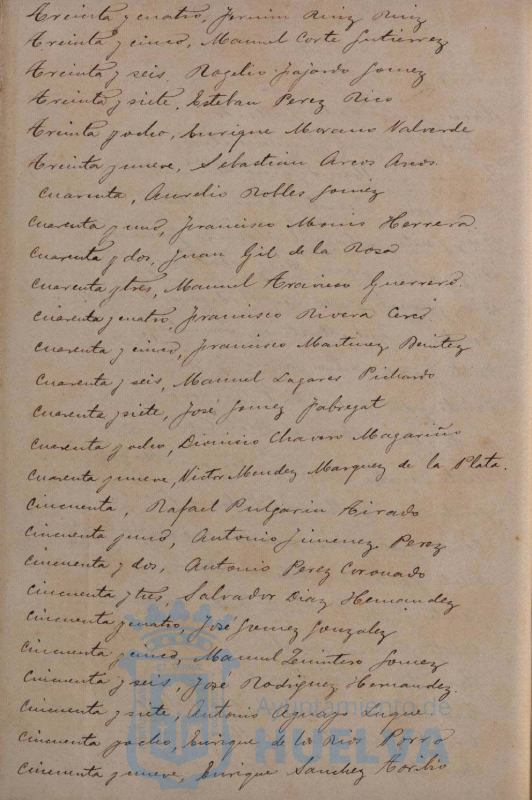 Treinta y cuatro, Fermin Ruiz Ruiz
Treinta y cinco, Manuel Corte Gutierrez
Treinta y seis, Rogelio Fajardo Gomez
Treinta y siete, Esteban Perez Rico
Treinta y ocho, Enrique Morano Valverde
Treinta y nueve, Sebastian Arcos Arcos.
Cuarenta, Aurelio Robles Gomez
Cuarenta y uno, Francisco Herrera
Cuarenta y dos, Juan Gil de la Rosa
Cuarenta y tres, Manuel Guerrero.
Cuarenta y cuatro, Francisco Rivera
Cuarenta y cinco, Francisco Martinez Benitez
Cuarenta y seis, Manuel Lagares Pichardo
Cuarenta y siete, José Gomez Fabregat
Cuarenta y ocho, Dionisio Chavero Magariño
Cuarenta y nueve, Victor Mendez Marquez de la Plata.
Cincuenta, Rafael Pulgarin Airado
Cincuenta y uno, Antonio Jimenez Perez
Cincuenta y dos, Antonio Perez Coronado
Cincuenta y tres, Salvador Diaz Hernandez
Cincuenta y cuatro, José Gomez Gonzalez
Cincuenta y cinco, Manuel Quintero Gomez
Cincuenta y seis, José Rodriguez Hernandez.
Cincuenta y siete, Antonio Aguayo Luque
Cincuenta y ocho, Enrique de los Rios Porro
Cincuenta y nueve, Enrique Sanchez Toribio
Ayuntamiento de
HUELVA